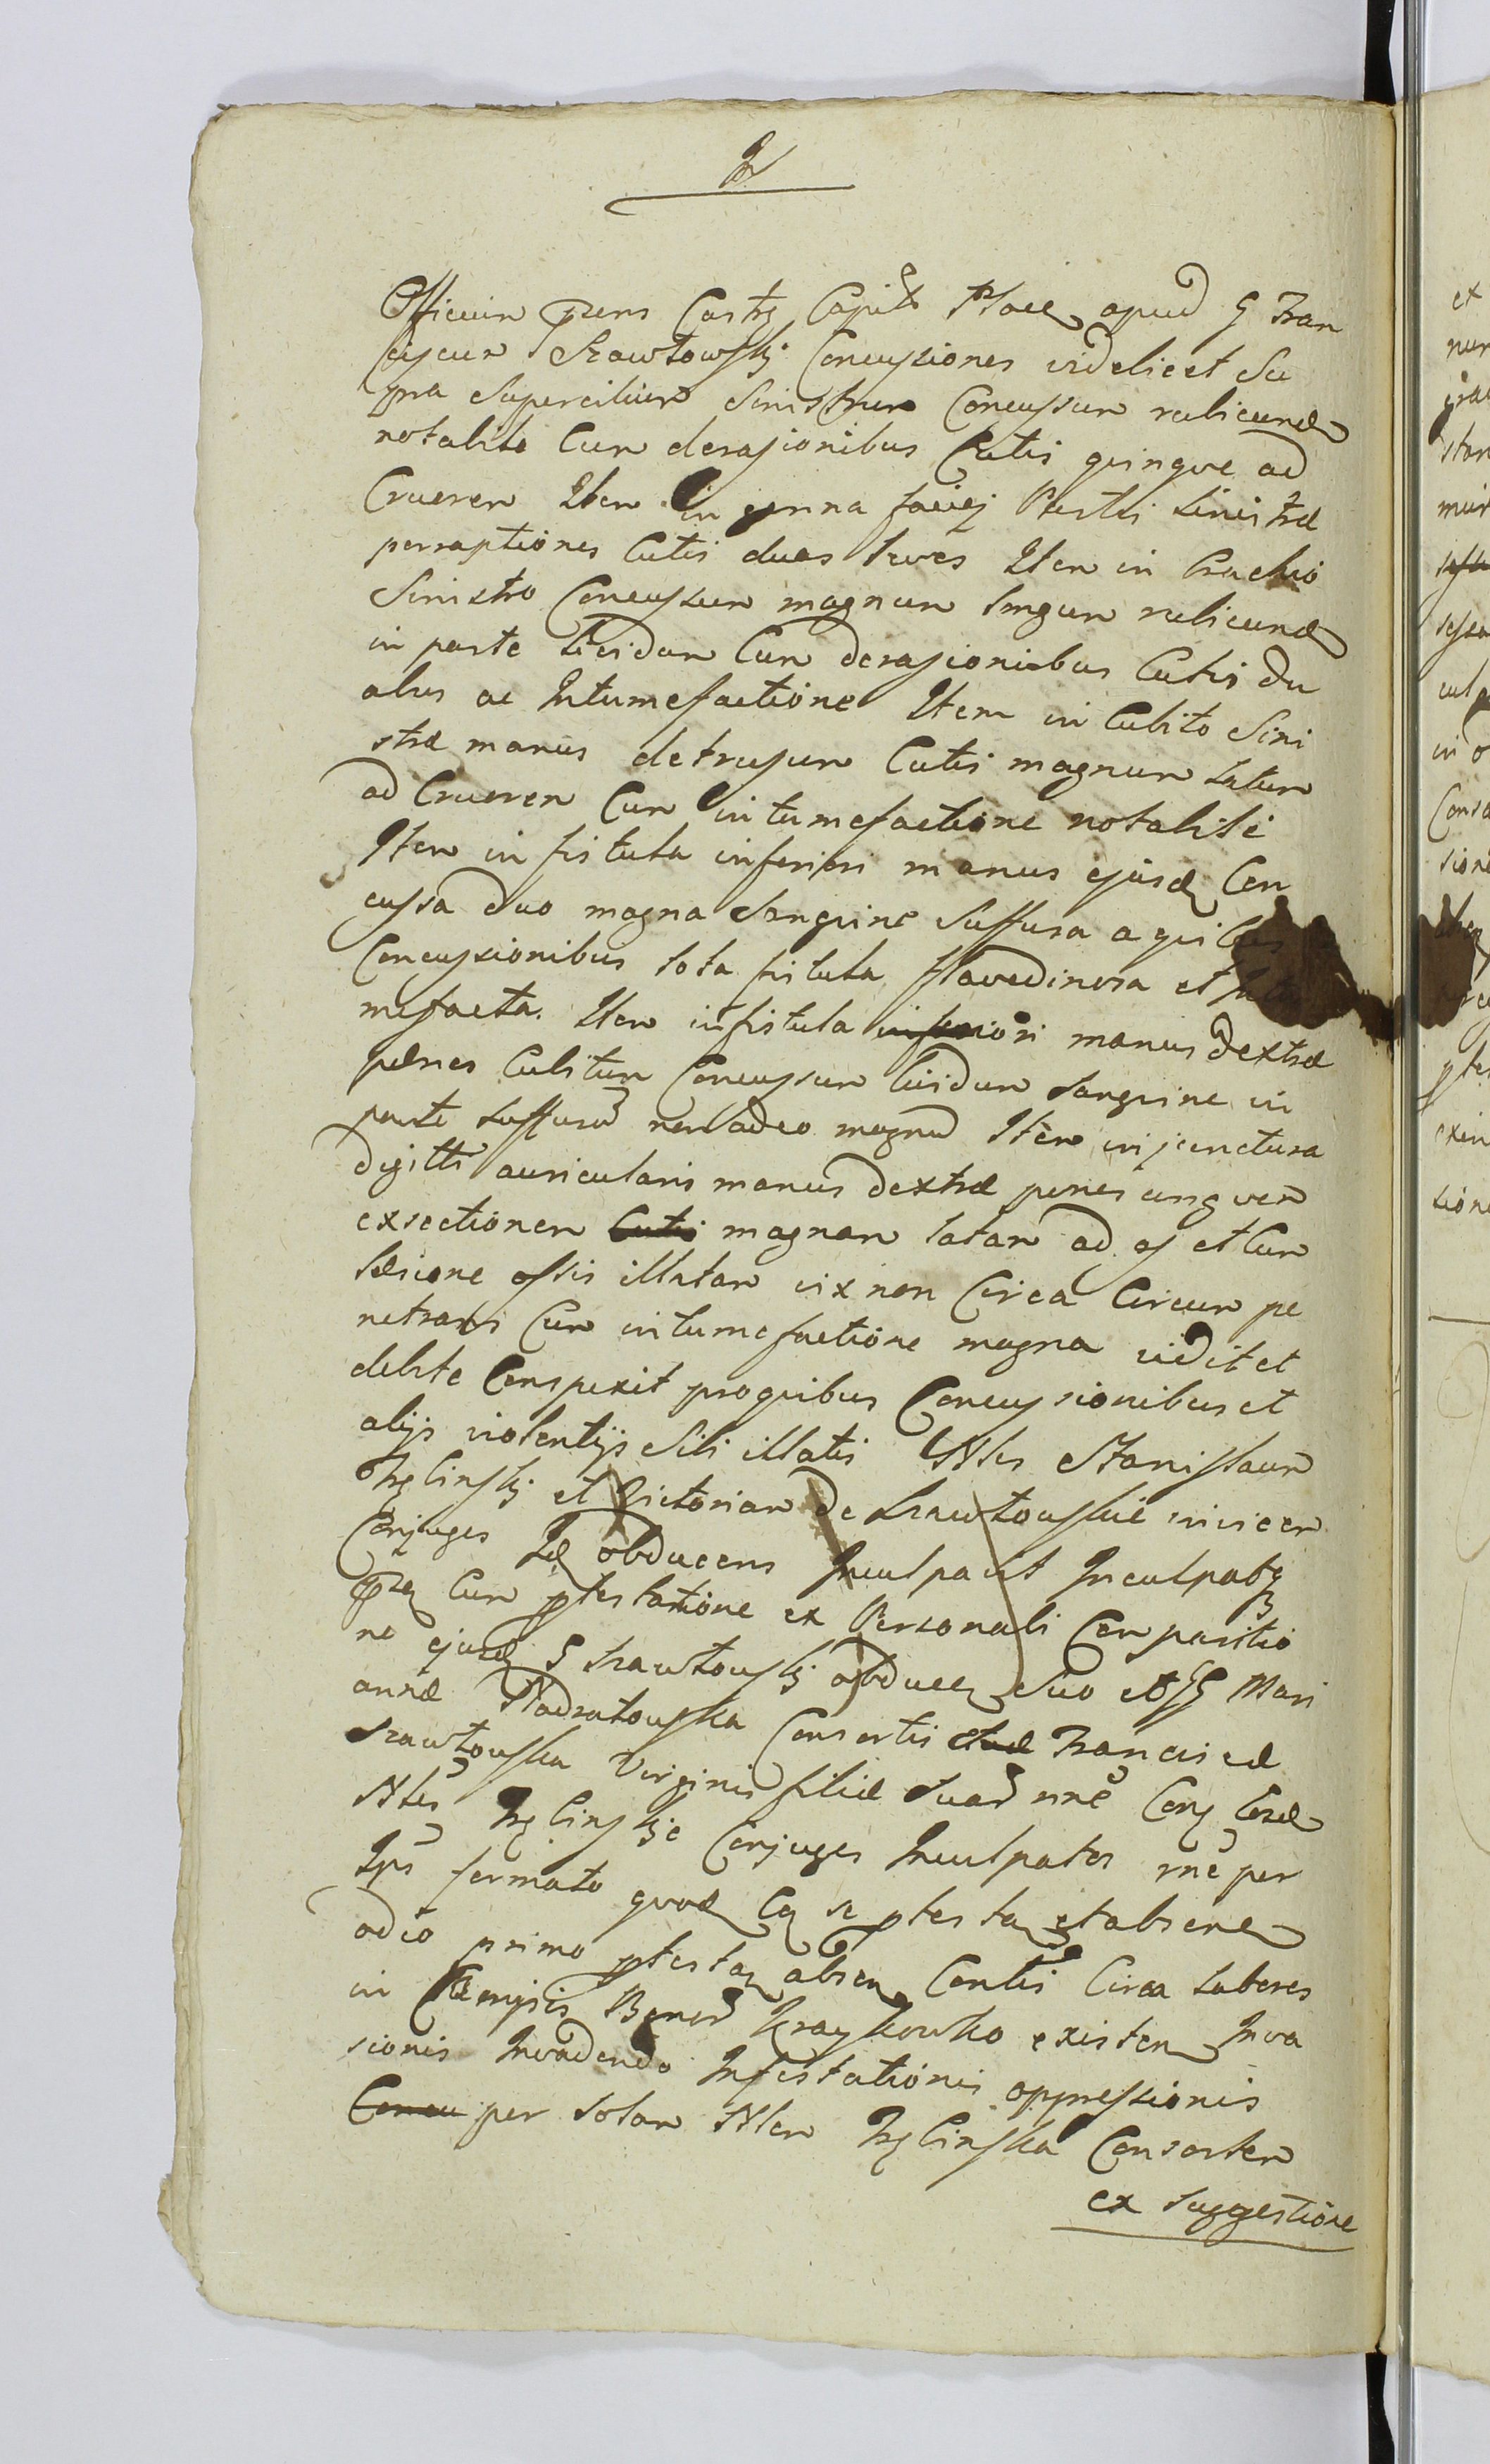 Officium pens Castr Capit Ploc apud G Fran
ciscum Szawłowski Concussiones videlicet Su
pra Supercilium Sinistrum Concussum rubicund
notabile Cum derasionibus Cutis quinque ad
Cruorem Item in genna faciej Partis sinistræ
perraptiones Cutis duas leves Item in brachio
Sinistro Concussum magnum longum rubicund
in parte lividum Cum derasionibus Cutis du
abus ac Intumefactione Item in Cubito Sini
stræ manus detrusum Cutis magnum latum
ad Cruorem Cum intumefactione notabili
Item in fistula inferiori manus ejusd Con
cussa duo magna Sanguine Suffusa a quibus
Concussionibus tota fistula flavedinosa et
mefacta. Item in fistula inferiori manus dextræ
penes Cubitum Concussum lividum Sanguine in
parte suffusum non adeo magnum Item in junctura
digitti auricularis manus dextræ penes unguem
exsectionem Cutis magnam latam ad os et Cum
læsione ossis illatam vix non Circa Circum pe
netrans Cum intumefactione magna vidit et
debite Conspexit pro quibus Concussionibus et
alijs violentijs Sibi illatis Nbles Stanislaum
et Victoriam de Szawłowskie invicem
Conjuges Id obducens Inculpavit Inculpatq
Cum ptestatione ex Personali Comparitio
ne ejusd G Szawłowski obducen Suo et Mari
annæ Consortis Suæ Franciscæ
Szawłowska Virginis filiæ Suar nne Con Cosd
Nbles Conjuges Inculpatos nne per
Ips formato quod Coq se ptesta et absene
odio primo ptestan absen Contis Circa Labores
in Campis Bonor existen Inva
sionis Invadendo Infestationis oppressionis
Concu per totam Nblem Consortem
ex suggestione